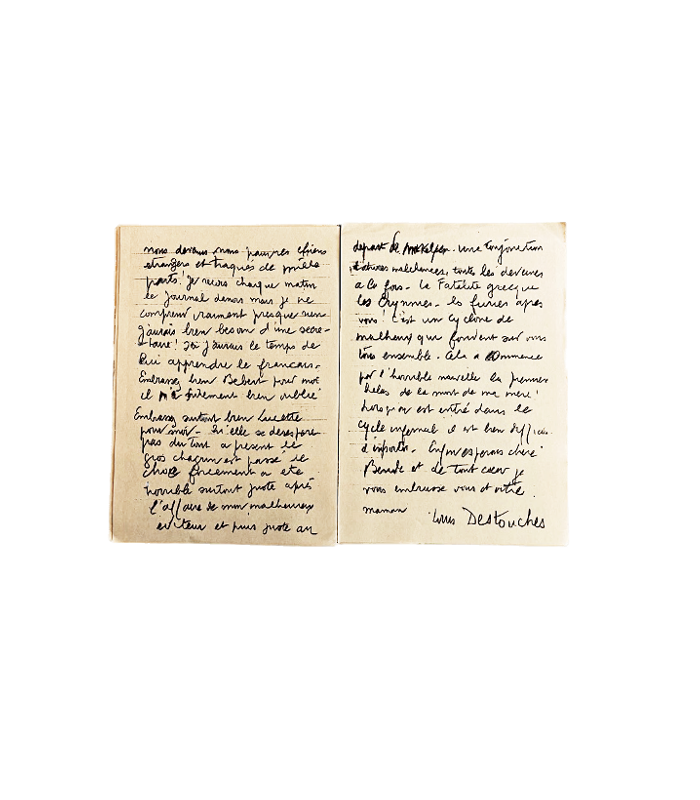 nous devenus nous pauvres chiens
etrangers et traqués de mille
parts! Je reçois chaque matin
le journal danois mais je ne
comprend vraiment presque rien
J'aurais bien besoin d'une secre-
taire! Ici j'aurais le temps de
lui apprendre le francais.
Embrassez bien Bebert pour moi
il m'a surement bien oublié
Embrassez surtout bien Lucette
pour moi. Qu'elle se desespere
pas du tout a present le
gros chagrin est passé le
choc forcement a eté
horrible surtout juste après
l'affaire de mon malheureux
editeur et puis juste au
depart de une conjonction
d'atroces malchances, toutes les deveines
a la fois. La Fatalité grecque
les Erynnies. les furies apres
vous! C'est un cyclone de
malheurs qui fondent sur vous
tous ensemble. Cela a commence
par l'horrible nouvelle la premiere
helas de la mort de ma mere!
Lorsqu'on est entré dans le
cycle infernal il est bien difficile
d'en sortir. Enfin esperons chere
et de tout coeur je
vous embrasse vous et votre
maman
Louis Destouches